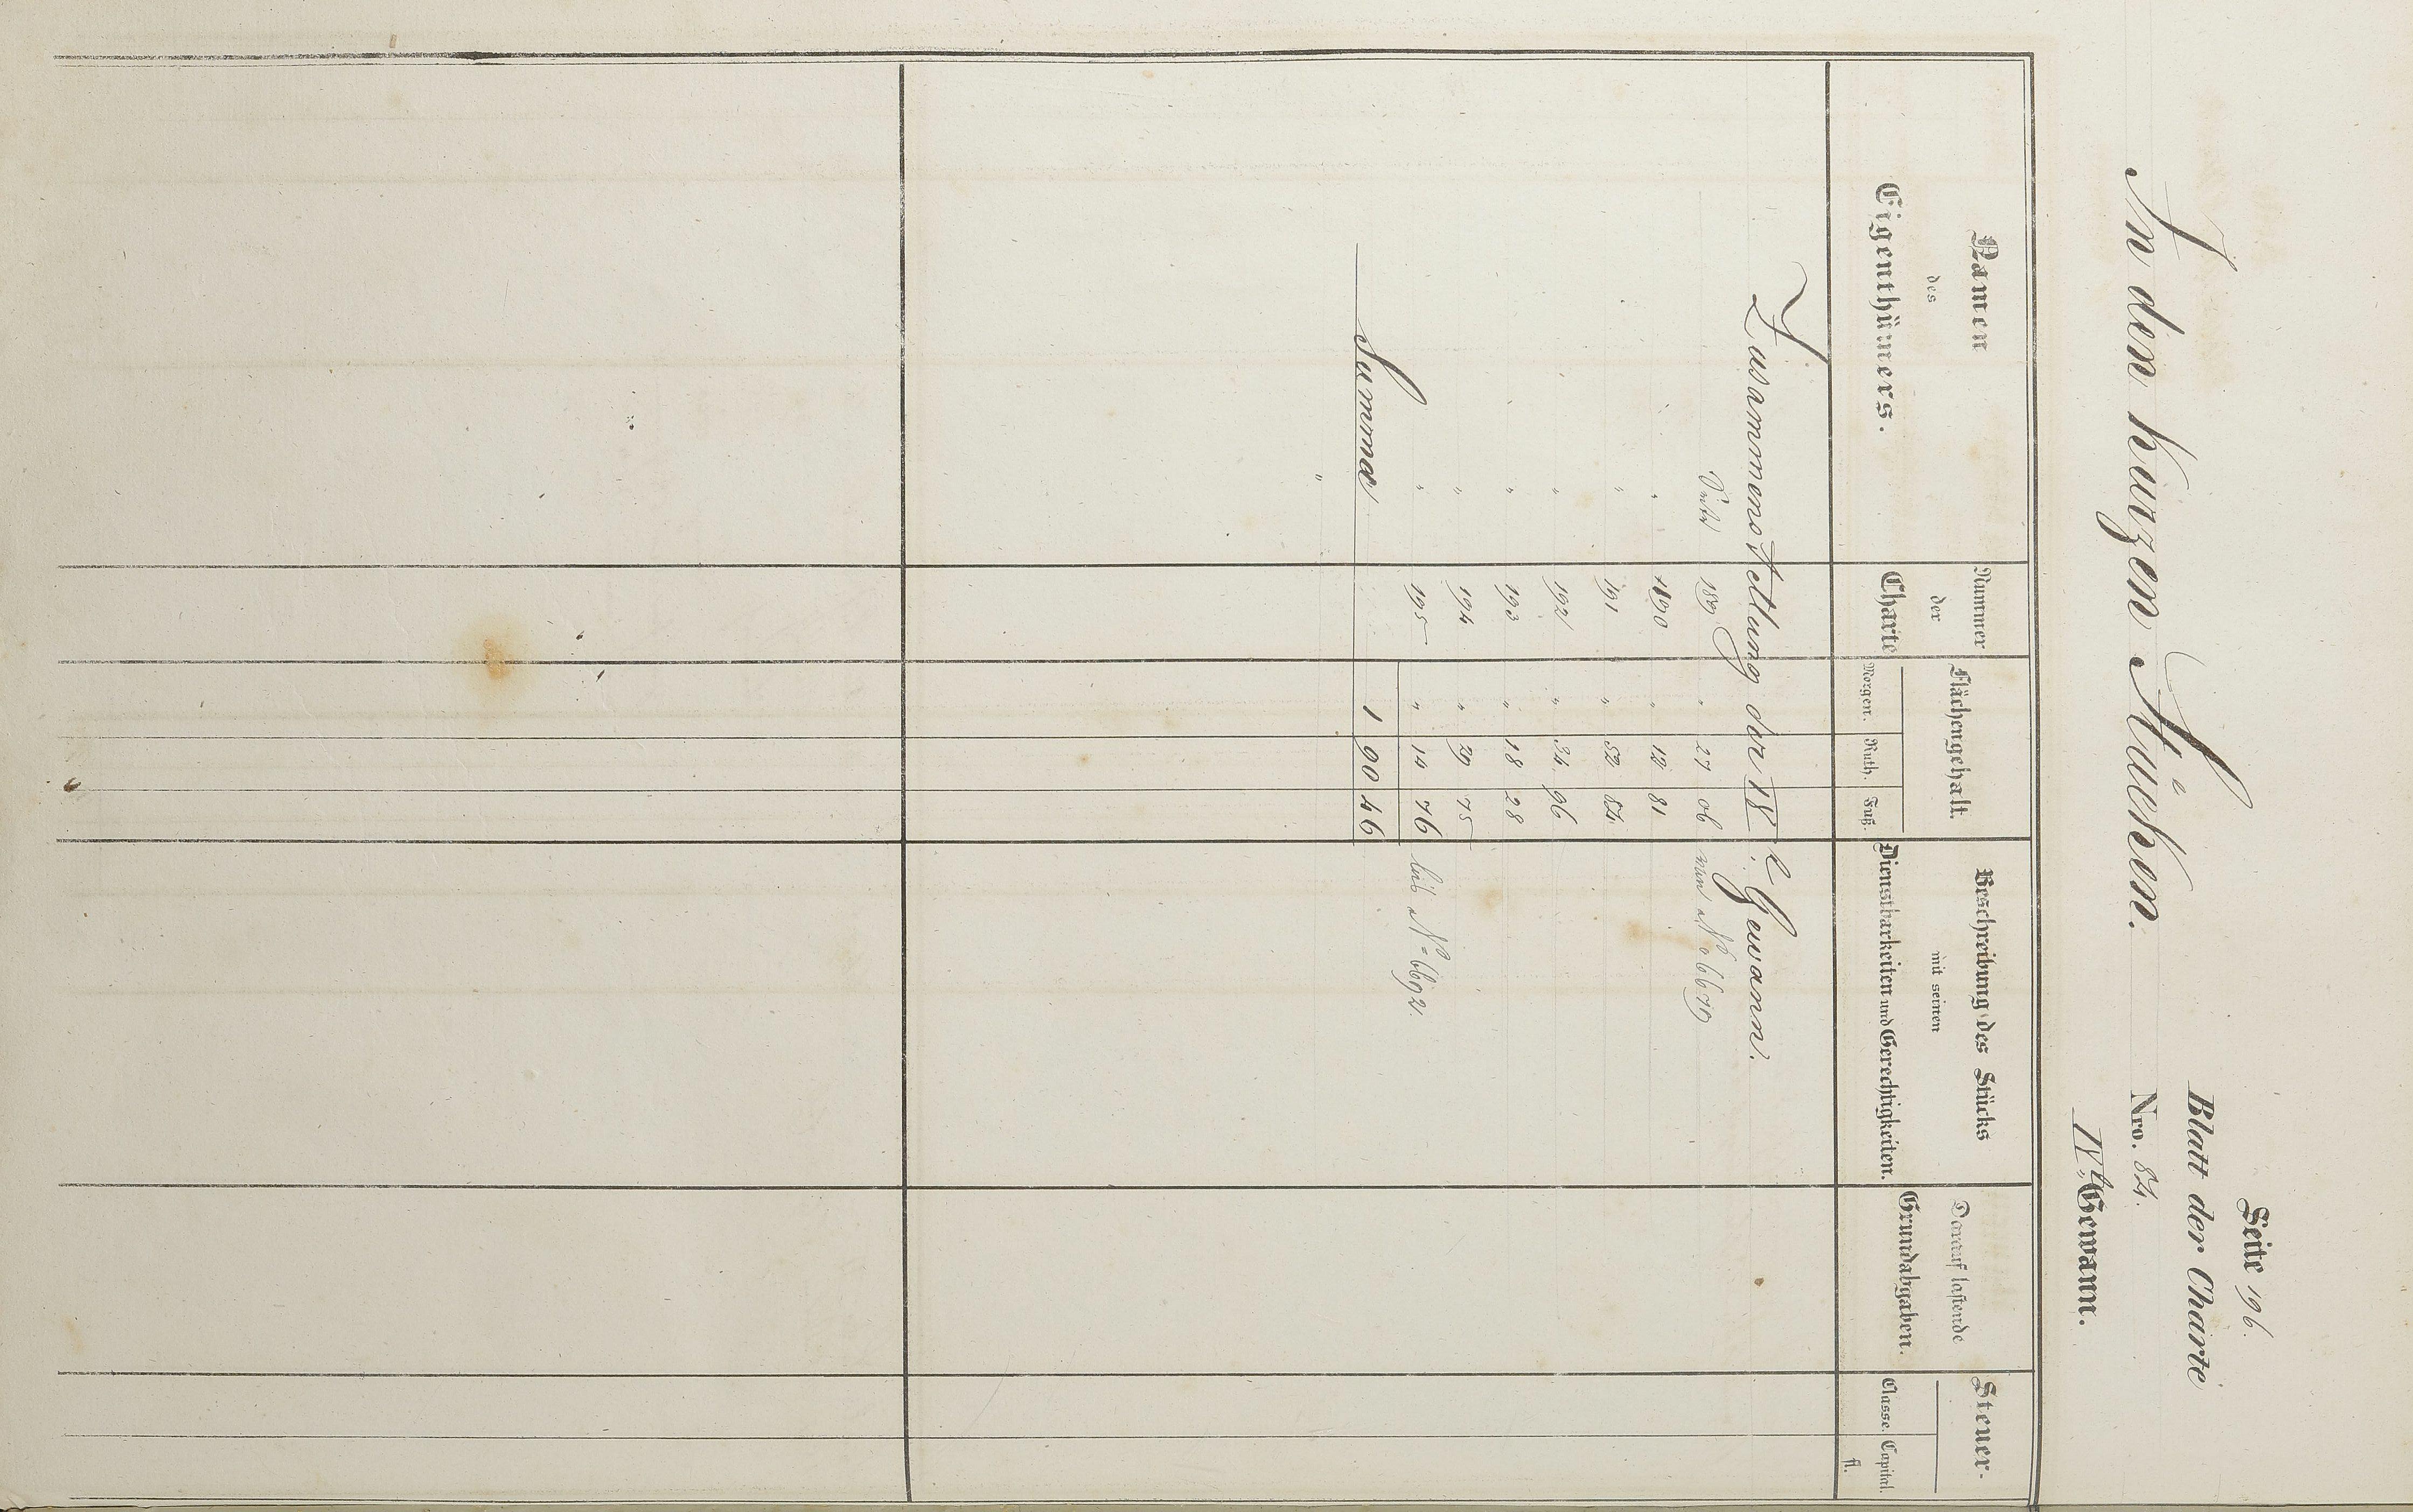 Seite 196.
Blatt der Charte
In den kurzen Stücken. Nro. 84.
IV.te Gewann.
Namen des Eigenthümers. Nummer der Charte Flächengehalt. Morgen. Ruth. Fuß. Beschreibung des Stücks mit seinen Dienstbarkeiten und Gerechtigkeiten. Darauf lastende Grundabgaben. Steuer. Classe. Capital. fl.
Zusammenstellung der IV.e Gewann.
Seite 189 " 27 06 von No 6679
" 190 " 12 81
" 191 " 52 84
" 192 " 34 96
" 193 " 18 28
" 194 " 29 75
" 195 " 14 76 bis No 6692.
Summa 1 90 46
"